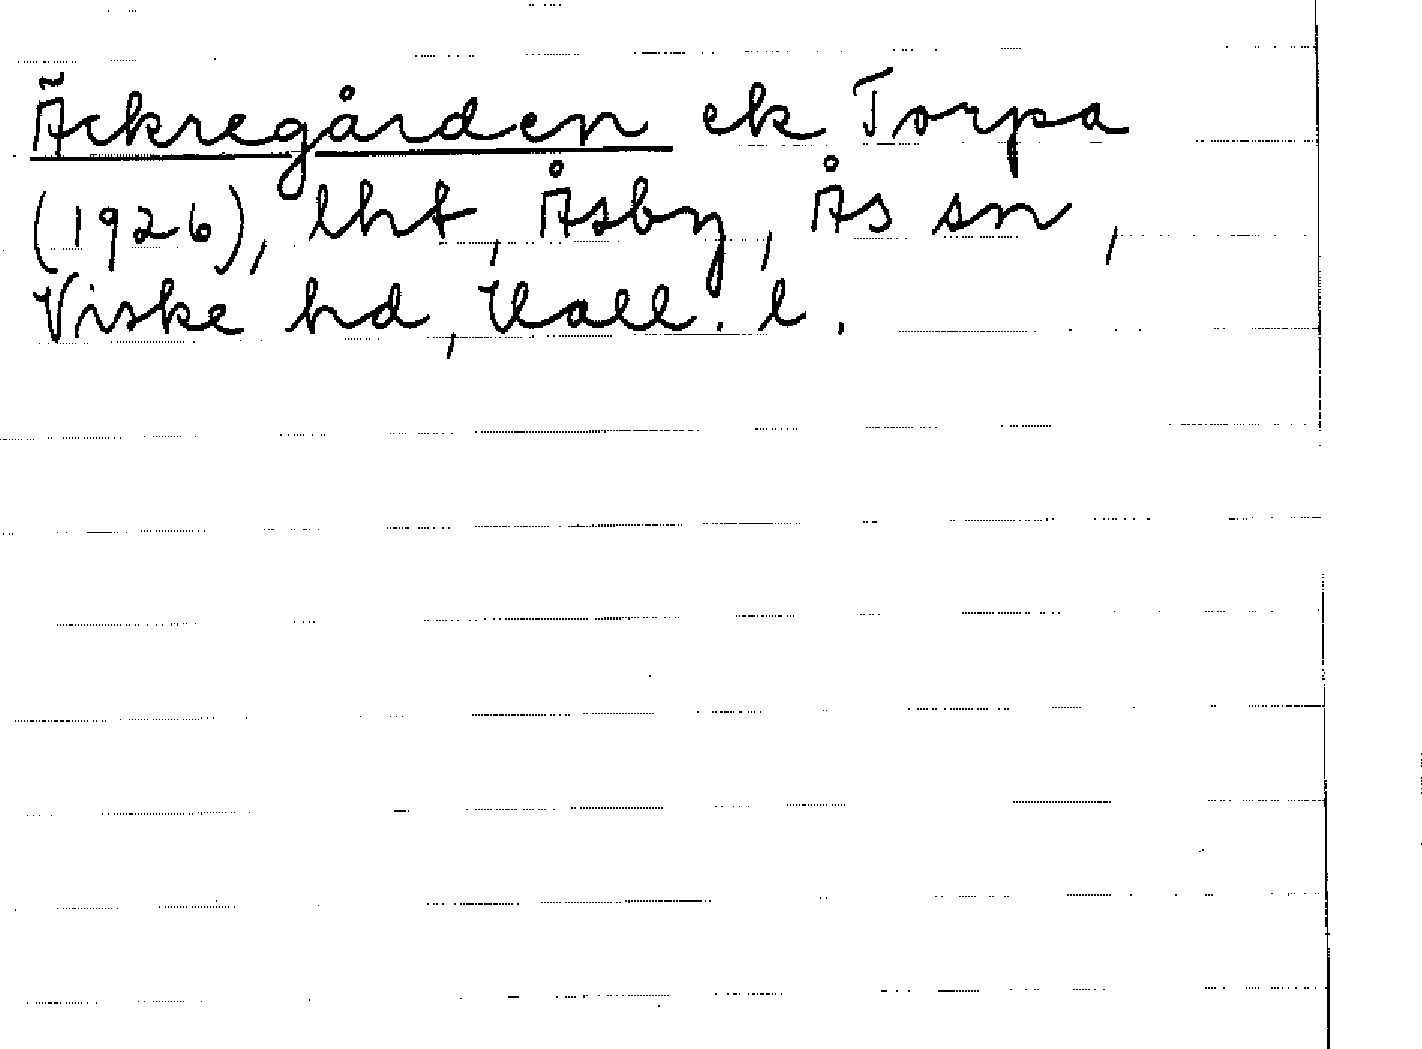 Äckregården ek Torpa
(1926), lht, Åsby, Ås sn,
Viske hd, Hall. l.